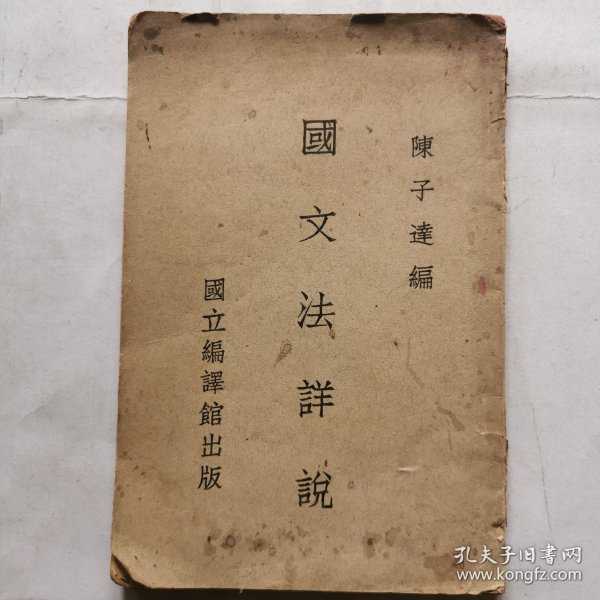 陳子達編
國文法詳說
國立編譯館出版
孔夫子旧书网
www.kongfz.com